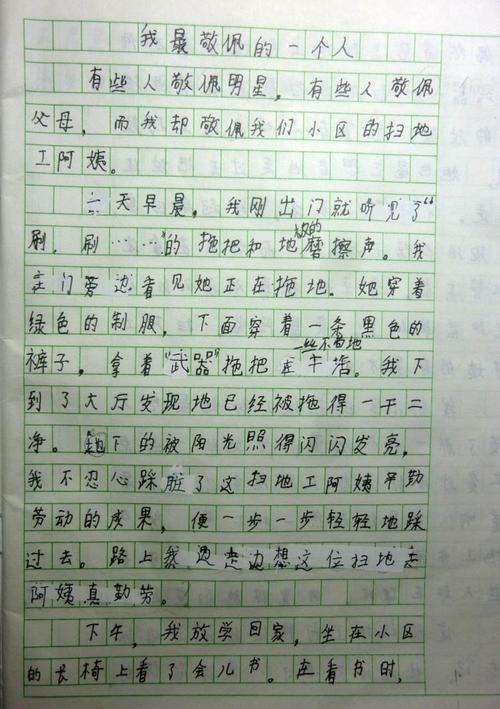 我最敬佩的一个人
有些人敬佩明星，有些人敬佩
父母，而我却敬佩我们小区的扫地
工阿姨。
一天早晨，我刚出门就听见了“
刷，刷……”的拖把和地的磨擦声。我
在门旁边看见她正在拖地。她穿着
绿色的制服，下面穿着一条黑色的
裤子，拿着“武器”拖把一丝不苟地在干活。我下
到了大厅发现地已经被拖得一干二
净。地下的被阳光照得闪闪发亮，
我不忍心踩脏了这扫地工阿姨辛勤
劳动的成果，便一步一步轻轻地踩
过去。路上我边走边想这位扫地
阿姨真勤劳。
下午，我放学回家，坐在小区
的长椅上看了会儿书。在看书时，